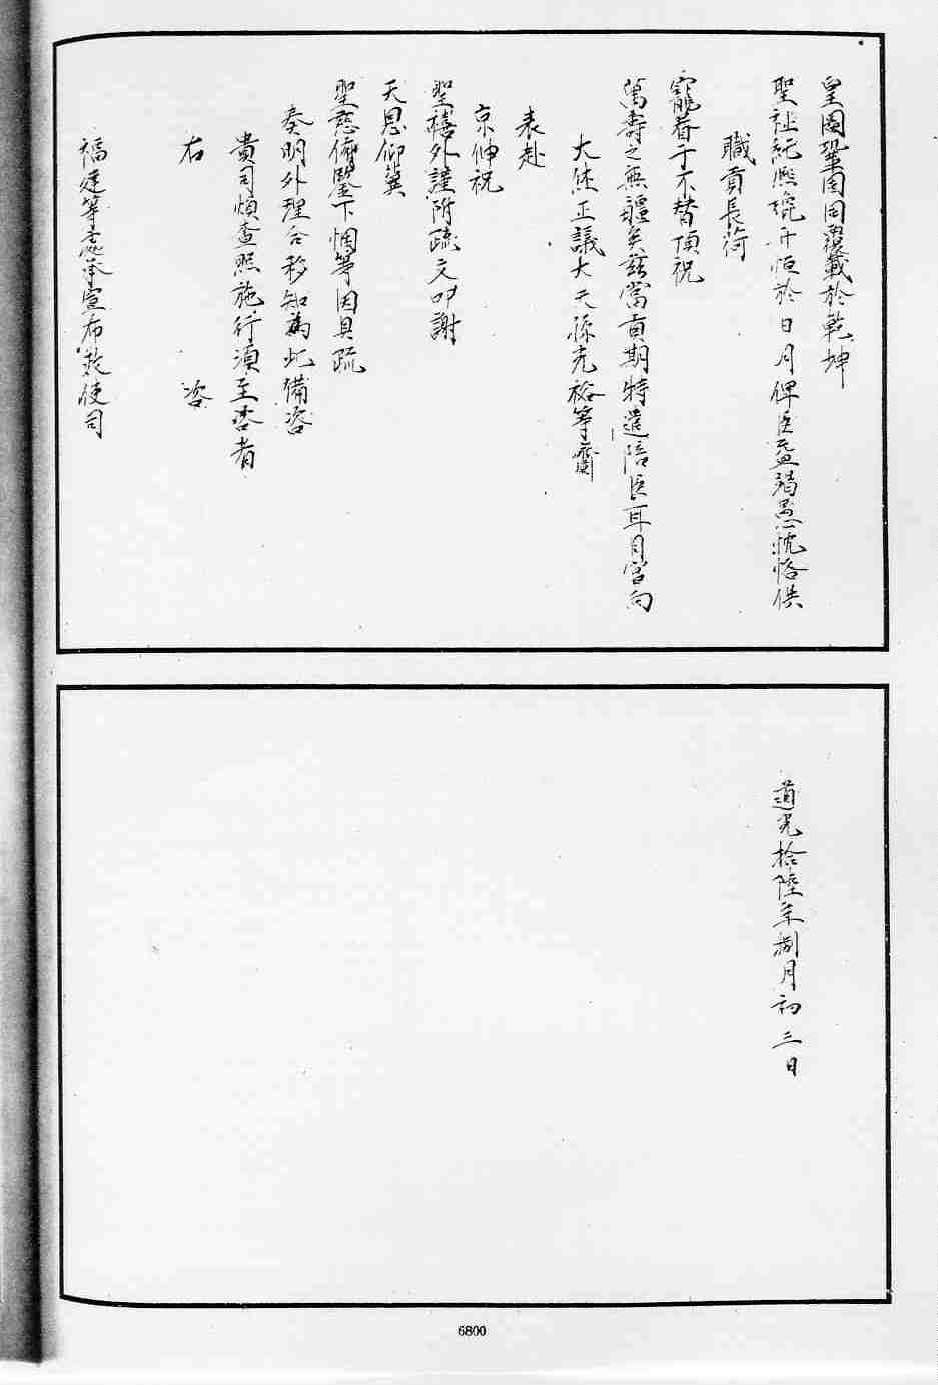 皇圖鞏固同覆載於乾坤
聖祉紀熙竟升恒於日月俾臣益竭愚忱恪供
職貢長荷
寵眷于不替頂祝
萬壽之無疆矣茲當貢期特遣陪臣耳目官向
大烋正議大夫孫光裕等齎
表赴
京伸祝
聖禧外謹附疏文叩謝
天恩仰冀
聖慈俯鑒下悃等因具疏
奏明外理合移知為此備咨
貴司煩查照施行須至咨者
右咨
福建等處承宣布政使司
道光拾陸年捌月初三日
6800